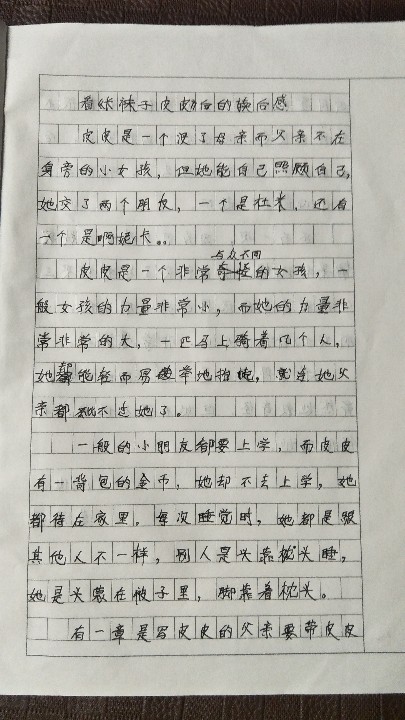 看《长袜子皮皮》后的读后感
皮皮是一个没了母亲而父亲不在
身旁的小女孩，但她能自己照顾自己，
她交了两个朋友，一个是杜米，还有
一个是啊妮卡。
与众不同
皮皮是一个非常奇怪的女孩，一
般女孩的力量非常小，而她的力量非
常非常的大，一匹马上骑着几个人，
她都能轻而易举地抬起，就连她父
亲都比不过她了。
一般的小朋友都要上学，而皮皮
有一背包的金币，她却不去上学，她
都待在家里。每次睡觉时，她都是跟
其他人不一样，别人是头靠枕头睡，
她是头蒙在被子里，脚靠着枕头。
有一章是写皮皮的父亲要带皮皮